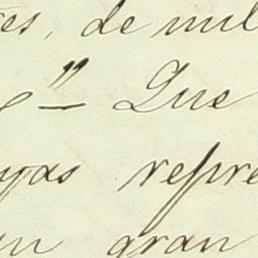 es, de mil
9º" — Que
uyas repre
un gran